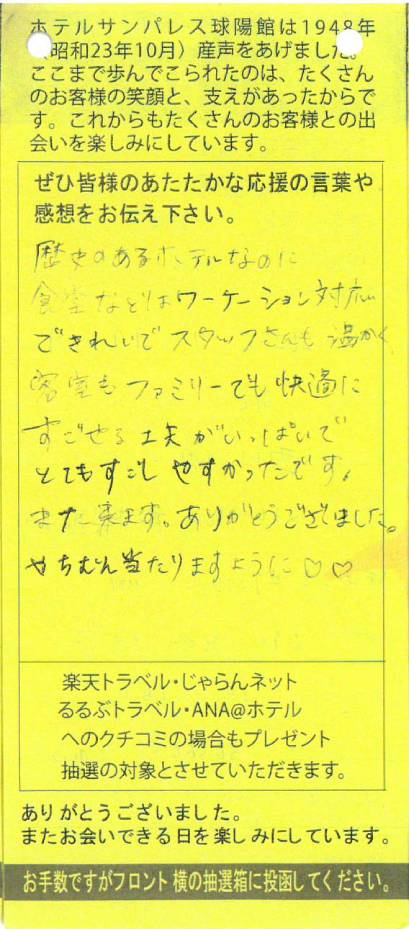 ホテルサンパレス球陽館は1948年
（昭和23年10月）産声をあげました。
ここまで歩んでこられたのは、たくさん
のお客様の笑顔と、支えがあったからで
す。これからもたくさんのお客様との出
会いを楽しみにしています。
ぜひ皆様のあたたかな応援の言葉や
感想をお伝え下さい。
歴史のあるホテルなのに
食堂などはワーケーション対応
できれいでスタッフさんも温かく
客室もファミリーでも快適に
すごせる工夫がいっぱいで
とてもすごしやすかったです。
また来ます。ありがとうございました。
やちむん当たりますように♡♡
楽天トラベル・じゃらんネット
るるぶトラベル・ANA@ホテル
へのクチコミの場合もプレゼント
抽選の対象とさせていただきます。
ありがとうございました。
またお会いできる日を楽しみにしています。
お手数ですがフロント横の抽選箱に投函してください。